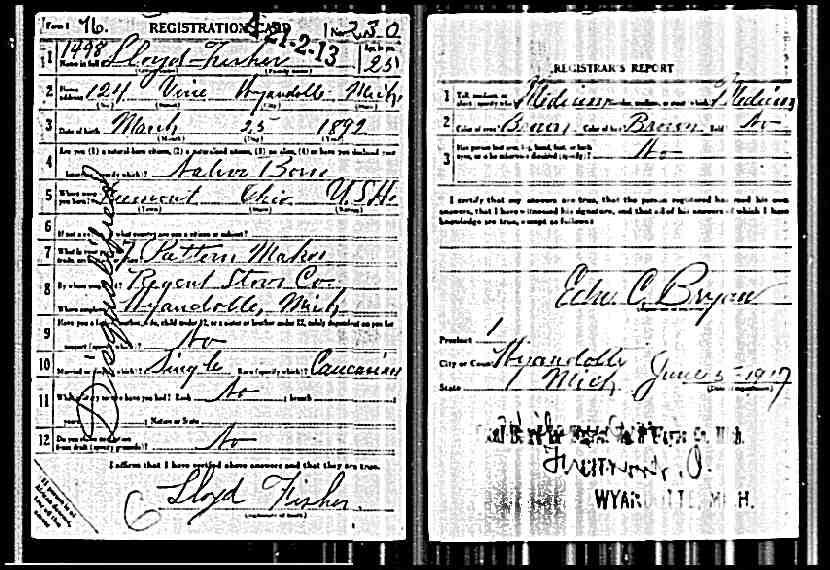 Form 1 76. REGISTRATION CARD No 230
21-2-13
1498
1 Name in full Lloyd Fisher Age, in yrs. 25
2 Home address 124 Vine Wyandotte Mich.
3 Date of birth March 25 1892
4 Are you (1) a natural-born citizen, (2) a naturalized citizen, (3) an alien, (4) or have you declared your
Native Born
5 Where were you born? Fremont Ohio U.S.A.
6 If not a citizen, of what country are you a citizen or subject?
7 What is your Pattern Maker
8 By whom Regent Stove Co
Where employed Wyandotte, Mich
9 Have you a father, mother, wife, child under 12, or a sister or brother under 12, solely dependent on you for
support No
10 Married or single (which)? Single Race (specify which)? Caucasian
11 What military service have you had? Rank No ; branch
years ; Nation or State
12 Do you claim exemption from draft (specify grounds)? No
I affirm that I have verified above answers and that they are true.
Lloyd Fisher
Disqualified
6
REGISTRAR'S REPORT
1 Tall, medium, or short (specify which)? Medium Slender, medium, or stout (which)? Medium
2 Color of eyes? Brown Color of hair? Brown Bald? No
3 Has person lost arm, leg, hand, foot, or both eyes, or is he otherwise disabled (specify)? No
I certify that my answers are true, that the person registered has read his own
answers, that I have witnessed his signature, and that all of his answers of which I have
knowledge are true, except as follows:
Edw C. Bryan
Precinct 1
City or County Wyandotte
State Mich June 5-1917
WYANDOTTE, MICH.